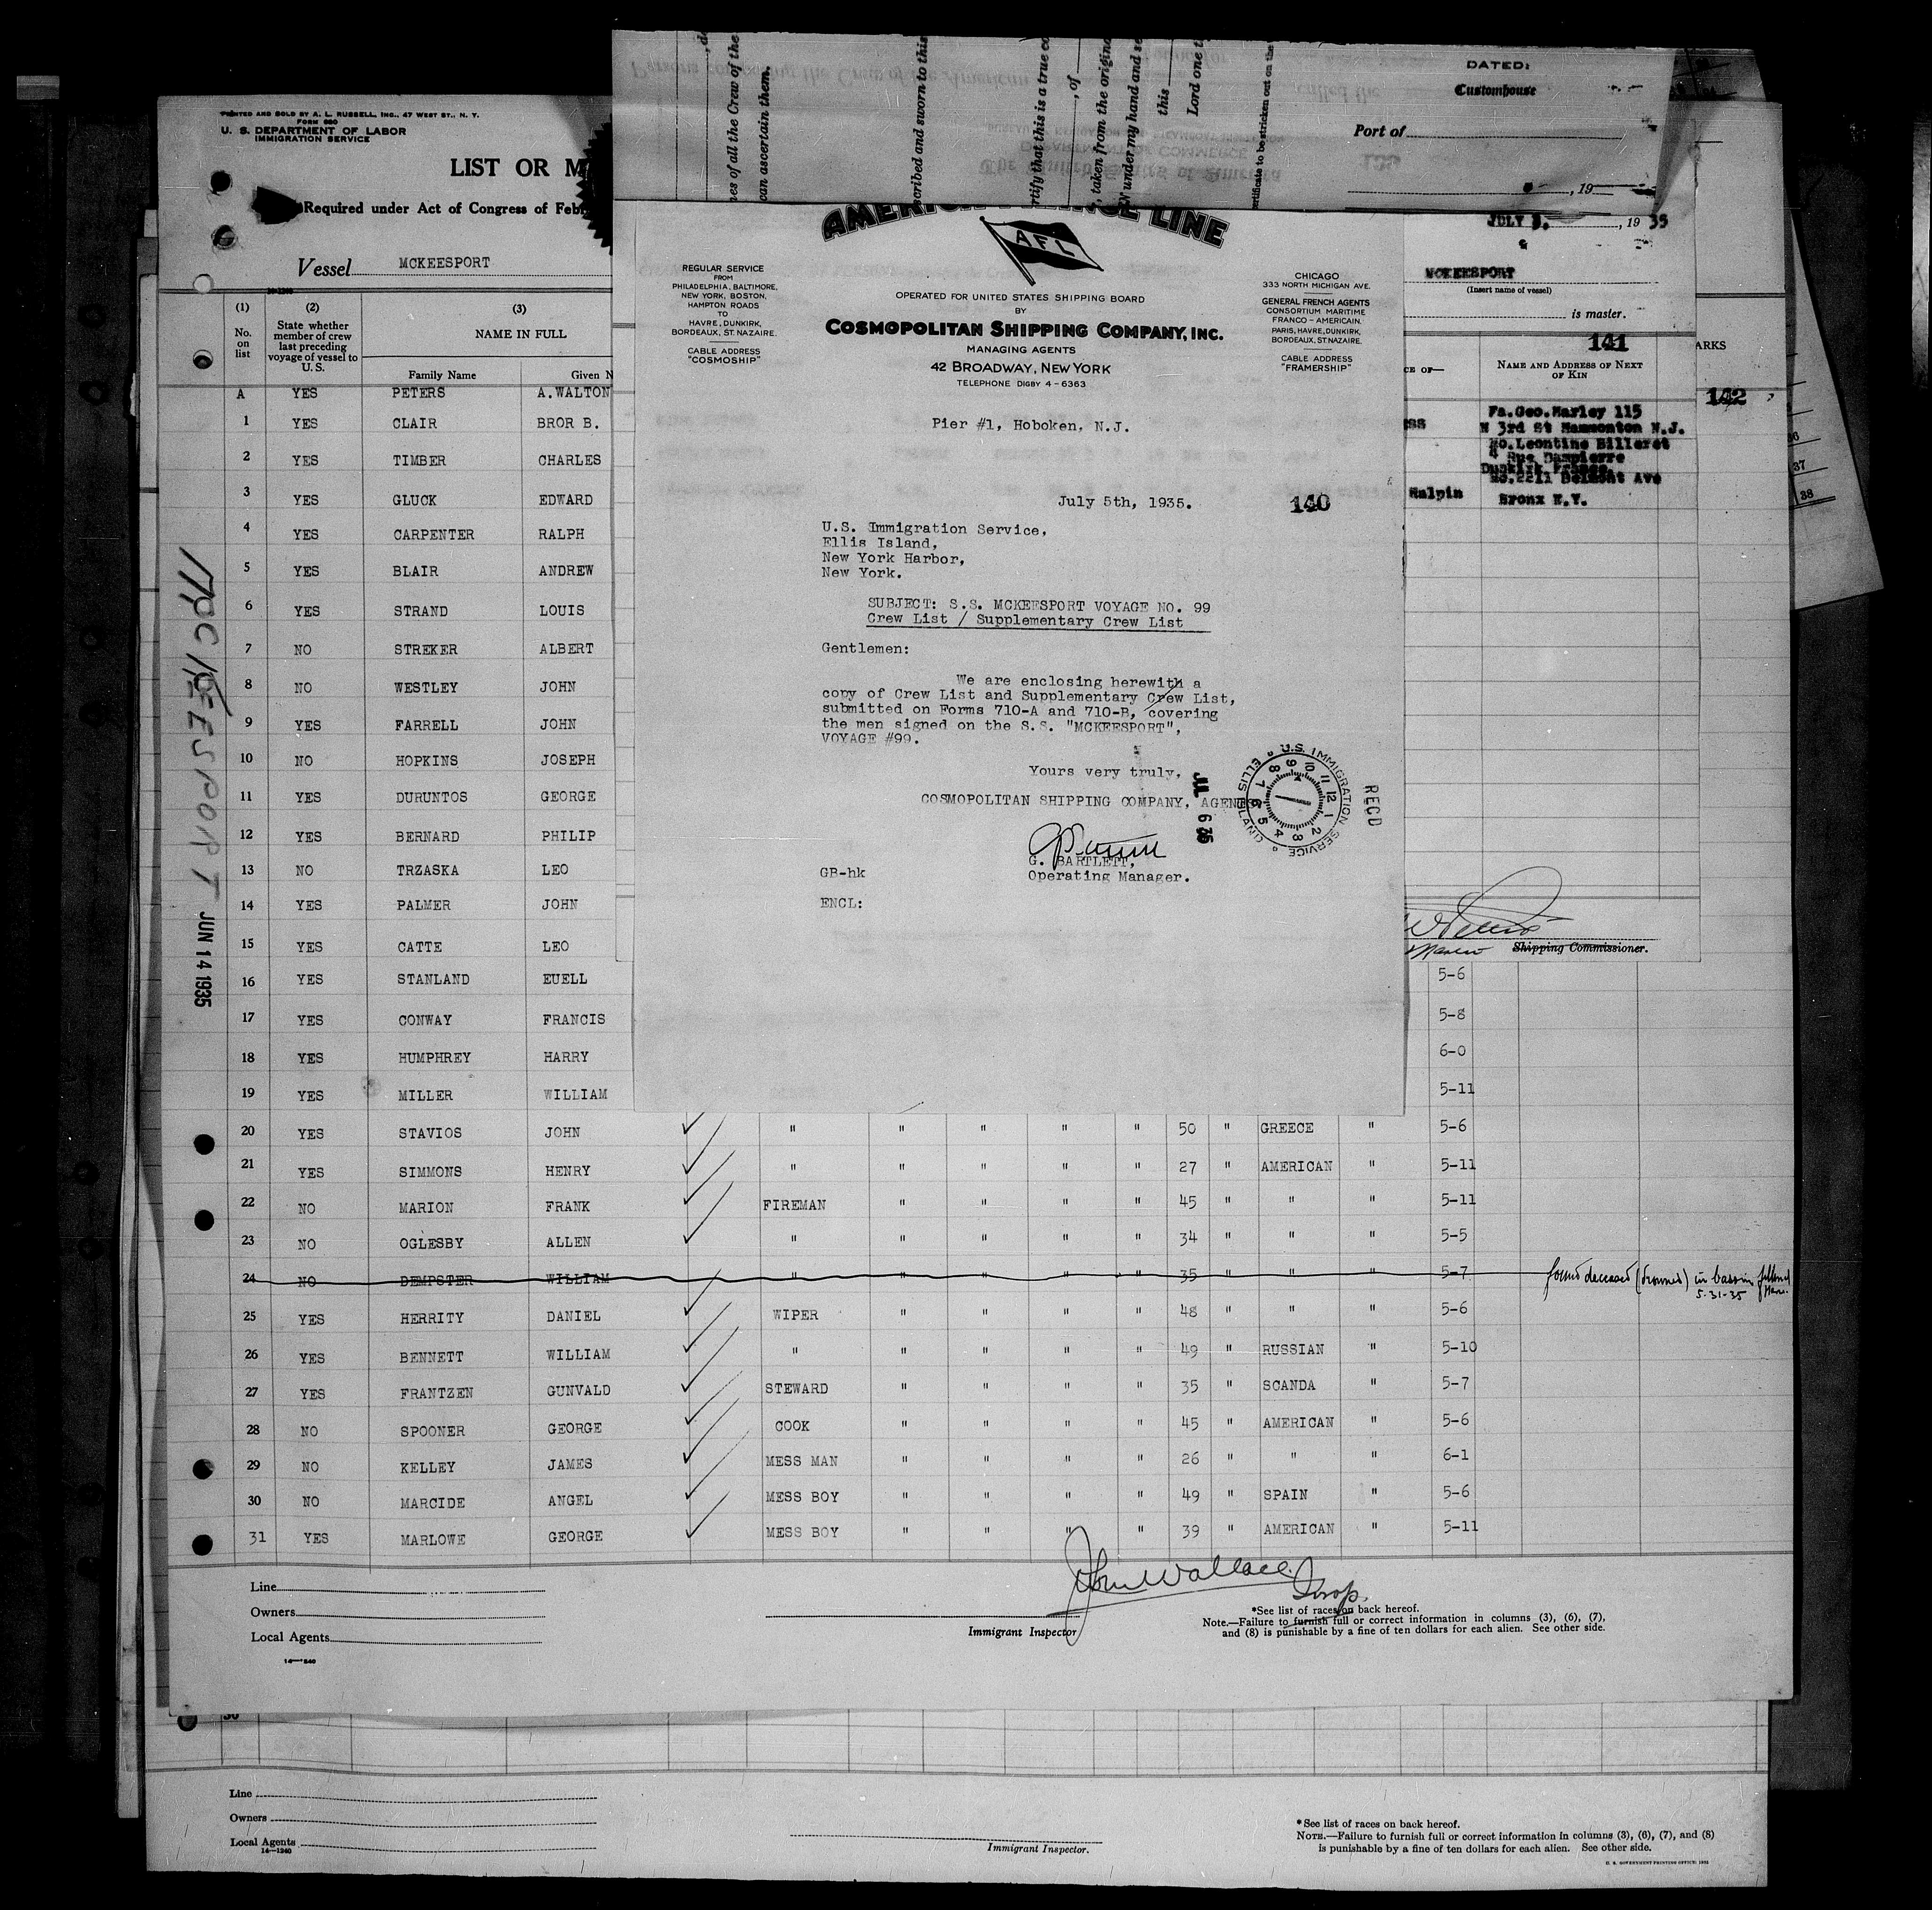 PRINTED AND SOLD BY A. L. RUSSELL, INC., 47 WEST ST., N. Y.
FORM 680
U. S. DEPARTMENT OF LABOR
IMMIGRATION SERVICE
LIST OR M
Required under Act of Congress of Feb
Vessel MCKEESPORT
(1) (2) (3)
No. on list
State whether member of crew last preceding voyage of vessel to U. S.
NAME IN FULL
Family Name Given N
A YES PETERS A. WALTON
1 YES CLAIR BROR B.
2 YES TIMBER CHARLES
3 YES GLUCK EDWARD
4 YES CARPENTER RALPH
5 YES BLAIR ANDREW
6 YES STRAND LOUIS
7 NO STREKER ALBERT
8 NO WESTLEY JOHN
9 YES FARRELL JOHN
10 NO HOPKINS JOSEPH
11 YES DURUNTOS GEORGE
12 YES BERNARD PHILIP
13 NO TRZASKA LEO
14 YES PALMER JOHN
15 YES CATTE LEO
16 YES STANLAND EUELL 5-6
17 YES CONWAY FRANCIS 5-8
18 YES HUMPHREY HARRY 6-0
19 YES MILLER WILLIAM 5-11
20 YES STAVIOS JOHN " " " " " 50 " GREECE " 5-6
21 YES SIMMONS HENRY " " " " " 27 " AMERICAN " 5-11
22 NO MARION FRANK FIREMAN " " " " 45 " " " 5-11
23 NO OGLESBY ALLEN " " " " " 34 " " " 5-5
24 NO DEMPSTER WILLIAM " " " " " 35 " " " 5-7 found deceased (drowned) in bassin
5-31-35
25 YES HERRITY DANIEL WIPER " " " " 48 " " " 5-6
26 YES BENNETT WILLIAM " " " " " 49 " RUSSIAN " 5-10
27 YES FRANTZEN GUNVALD STEWARD " " " " 35 " SCANDA " 5-7
28 NO SPOONER GEORGE COOK " " " " 45 " AMERICAN " 5-6
29 NO KELLEY JAMES MESS MAN " " " " 26 " " " 6-1
30 NO MARCIDE ANGEL MESS BOY " " " " 49 " SPAIN " 5-6
31 YES MARLOWE GEORGE MESS BOY " " " " 39 " AMERICAN " 5-11
MCKEESPORT
JUN 14 1935
Line
Owners
Local Agents
14-1240
John Wallace
Insp.
Immigrant Inspector
*See list of races on back hereof.
Note.—Failure to furnish full or correct information in columns (3), (6), (7),
and (8) is punishable by a fine of ten dollars for each alien. See other side.
nes of all the Crew of the
can ascertain them.
scribed and sworn to this
rtify that this is a true co
, of
, taken from the origina
N under my hand and se
this
Lord one t
ertificate to be stricken out on the
DATED:
Customhouse
Port of
, 19
AMERICAN FRANCE LINE
AFL
REGULAR SERVICE
FROM
PHILADELPHIA, BALTIMORE,
NEW YORK, BOSTON,
HAMPTON ROADS
TO
HAVRE, DUNKIRK,
BORDEAUX, ST. NAZAIRE.
CABLE ADDRESS
"COSMOSHIP"
OPERATED FOR UNITED STATES SHIPPING BOARD
BY
COSMOPOLITAN SHIPPING COMPANY, INC.
MANAGING AGENTS
42 BROADWAY, NEW YORK
TELEPHONE DIGBY 4-6363
CHICAGO
333 NORTH MICHIGAN AVE.
GENERAL FRENCH AGENTS
CONSORTIUM MARITIME
FRANCO-AMERICAIN.
PARIS, HAVRE, DUNKIRK,
BORDEAUX, ST. NAZAIRE.
CABLE ADDRESS
"FRAMERSHIP"
Pier #1, Hoboken, N.J.
July 5th, 1935.
140
U.S. Immigration Service,
Ellis Island,
New York Harbor,
New York.
SUBJECT: S.S. MCKEESPORT VOYAGE NO. 99
Crew List / Supplementary Crew List
Gentlemen:
We are enclosing herewith a
copy of Crew List and Supplementary Crew List,
submitted on Forms 710-A and 710-B, covering
the men signed on the S.S. "MCKEESPORT",
VOYAGE #99.
Yours very truly,
COSMOPOLITAN SHIPPING COMPANY, AGENTS
G. BARTLETT,
Operating Manager.
GB-hk
ENCL:
JUL 6 35
U.S. IMMIGRATION SERVICE ELLIS ISLAND
RECD
JULY 3. , 19 35
MCKEESPORT
(Insert name of vessel)
is master.
141
CE OF—
NAME AND ADDRESS OF NEXT OF KIN
ARKS
142
ess
Fa. Geo. Marley 115
N 3rd St Hammonton N.J.
Mo. Leontine Billeret
4 Rue Dampierre
Dunkirk France
Mo. 2211 Belmont Ave
Halpin Bronx N.Y.
Shipping Commissioner.
37
38
30
Line
Owners
Local Agents
14-1240
Immigrant Inspector.
*See list of races on back hereof.
NOTE.—Failure to furnish full or correct information in columns (3), (6), (7), and (8)
is punishable by a fine of ten dollars for each alien. See other side.
U. S. GOVERNMENT PRINTING OFFICE